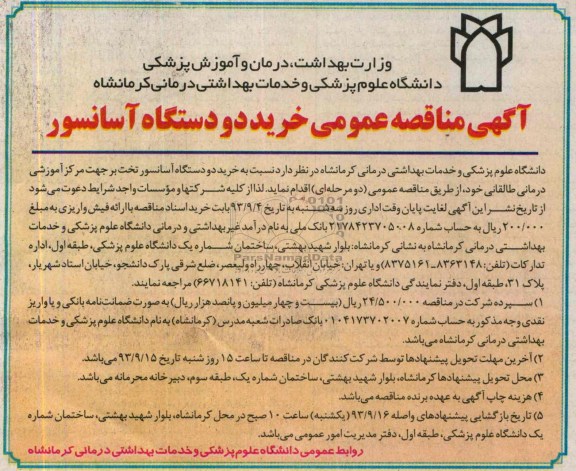 وزارت بهداشت، درمان و آموزش پزشکی
دانشگاه علوم پزشکی و خدمات بهداشتی درمانی کرمانشاه
آگهی مناقصه عمومی خرید دو دستگاه آسانسور
دانشگاه علوم پزشکی و خدمات بهداشتی درمانی کرمانشاه در نظر دارد نسبت به خرید دو دستگاه آسانسور تخت بر جهت مرکز آموزشی
درمانی طالقانی خود، از طریق مناقصه عمومی (دو مرحله‌ای) اقدام نماید. لذا از کلیه شرکتها و مؤسسات واجد شرایط دعوت می‌شود
از تاریخ نشر این آگهی لغایت پایان وقت اداری روز سه‌شنبه به تاریخ ۹۳/۹/۴ بابت خرید اسناد مناقصه با ارائه فیش واریزی به مبلغ
۲۰۰/۰۰۰ ریال به حساب شماره ۲۱۷۸۴۲۳۷۰۵۰۰۸ بانک ملی به نام درآمد غیر بهداشتی و درمانی دانشگاه علوم پزشکی و خدمات
بهداشتی درمانی کرمانشاه به نشانی کرمانشاه: بلوار شهید بهشتی، ساختمان شماره یک دانشگاه علوم پزشکی، طبقه اول، اداره
تدارکات (تلفن: ۸۳۶۳۱۴۸ـ۸۳۷۵۱۶۱) و یا تهران: خیابان انقلاب، چهارراه ولیعصر، ضلع شرقی پارک دانشجو، خیابان استاد شهریار،
پلاک ۳۱، طبقه اول، دفتر نمایندگی دانشگاه علوم پزشکی کرمانشاه (تلفن: ۶۶۷۱۸۱۴۱) مراجعه نمایند.
۱) سپرده شرکت در مناقصه ۲۴/۵۰۰/۰۰۰ ریال (بیست و چهار میلیون و پانصد هزار ریال) به صورت ضمانت‌نامه بانکی و یا واریز
نقدی وجه مذکور به حساب شماره ۰۱۰۴۱۷۳۷۰۲۰۰۷ بانک صادرات شعبه مدرس (کرمانشاه) به نام دانشگاه علوم پزشکی و خدمات
بهداشتی درمانی کرمانشاه می‌باشد.
۲) آخرین مهلت تحویل پیشنهادها توسط شرکت کنندگان در مناقصه تا ساعت ۱۵ روز شنبه تاریخ ۹۳/۹/۱۵ می‌باشد.
۳) محل تحویل پیشنهادها کرمانشاه، بلوار شهید بهشتی، ساختمان شماره یک، طبقه سوم، دبیرخانه محرمانه می‌باشد.
۴) هزینه چاپ آگهی به عهده برنده مناقصه می‌باشد.
۵) تاریخ بازگشایی پیشنهادهای واصله ۹۳/۹/۱۶ (یکشنبه) ساعت ۱۰ صبح در محل کرمانشاه، بلوار شهید بهشتی، ساختمان شماره
یک دانشگاه علوم پزشکی، طبقه اول، دفتر مدیریت امور عمومی می‌باشد.
روابط عمومی دانشگاه علوم پزشکی و خدمات بهداشتی درمانی کرمانشاه